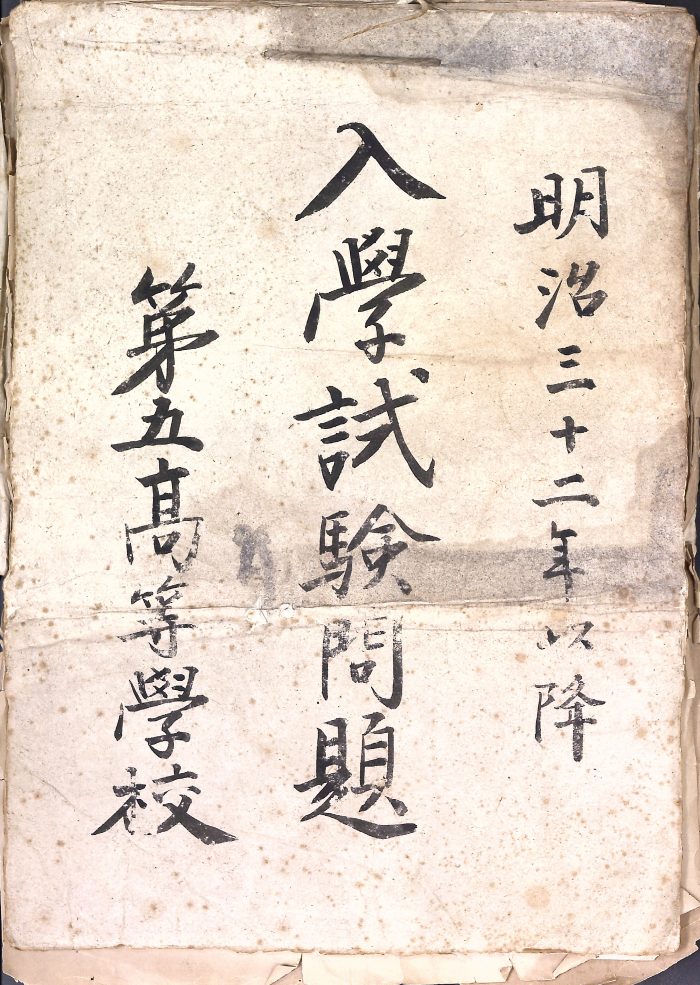 明治三十二年以降
入學試験問題
第五高等學校